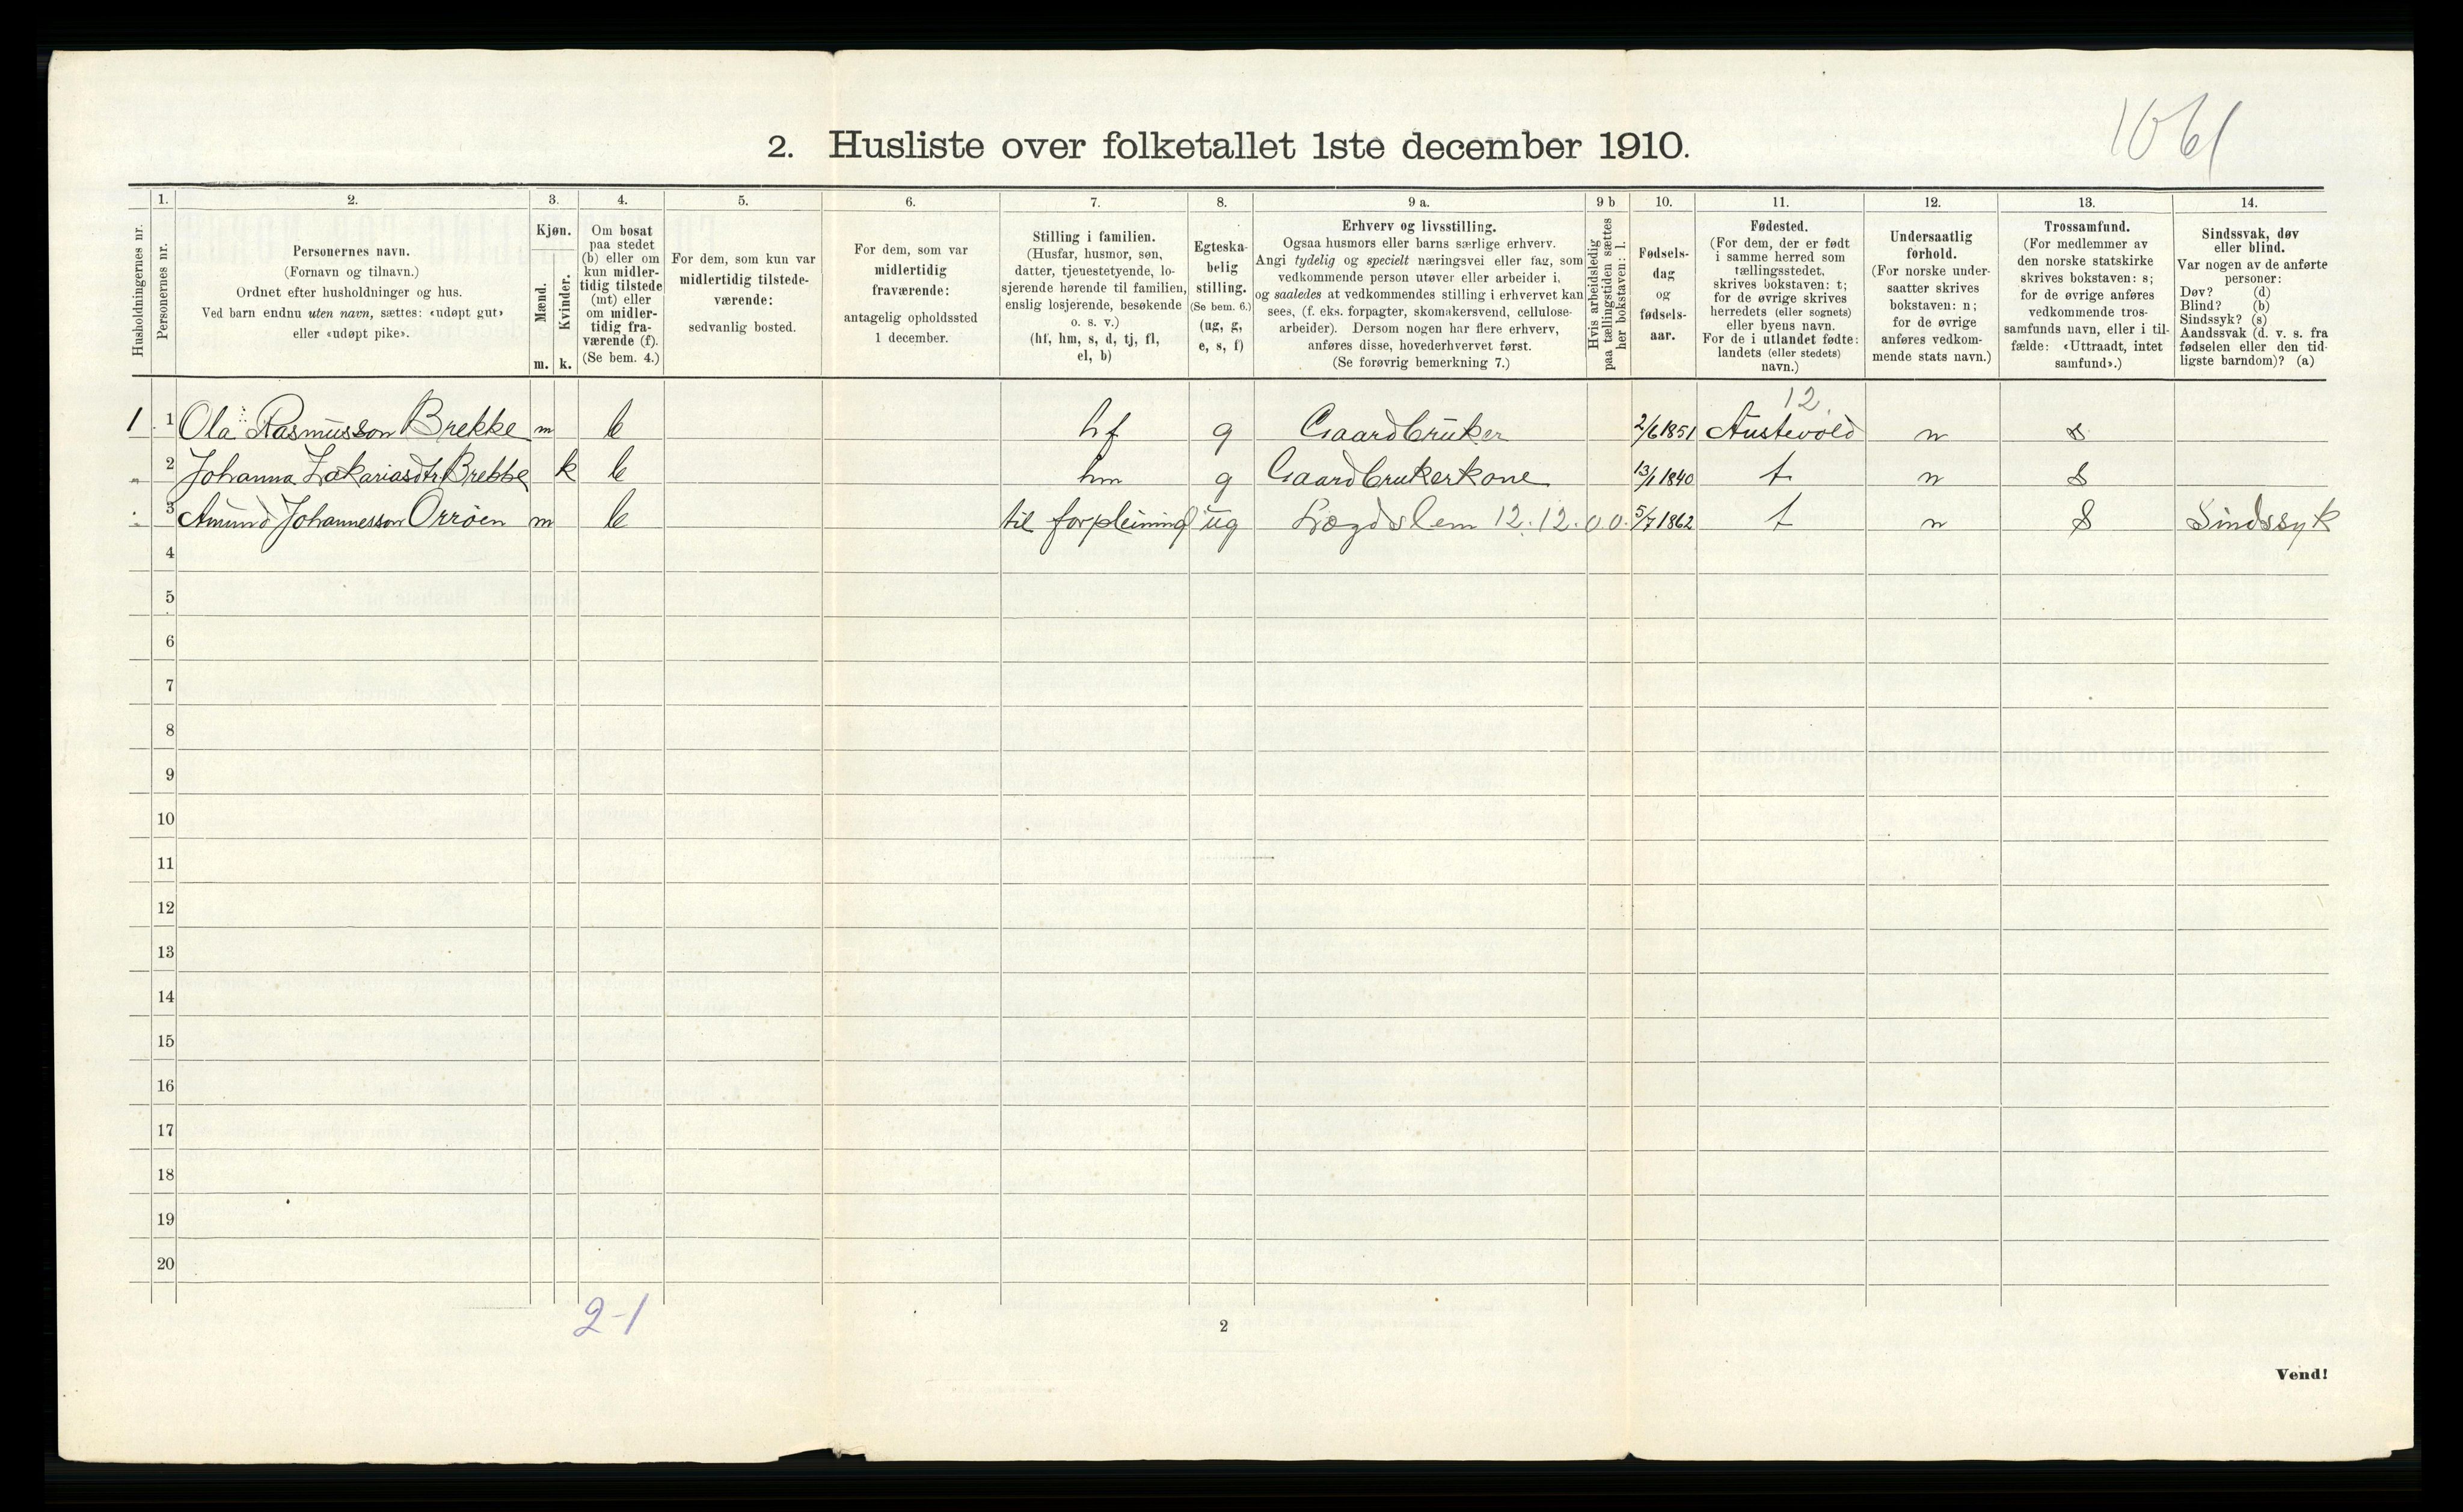 1061
2. Husliste over folketallet 1ste december 1910.
1. 2. 3. 4. 5. 6. 7. 8. 9 a. 9 b 10. 11. 12. 13. 14.
Husholdningernes nr.
Personernes nr.
Personernes navn.
(Fornavn og tilnavn.)
Ordnet efter husholdninger og hus.
Ved barn endnu uten navn, sættes: «udøpt gut»
eller «udøpt pike».
Kjøn.
Mænd.
Kvinder.
m. k.
Om bosat
paa stedet
(b) eller om
kun midler-
tidig tilstede
(mt) eller
om midler-
tidig fra-
værende (f).
(Se bem. 4.)
For dem, som kun var
midlertidig tilstede-
værende:
sedvanlig bosted.
For dem, som var
midlertidig
fraværende:
antagelig opholdssted
1 december.
Stilling i familien.
(Husfar, husmor, søn,
datter, tjenestetyende, lo-
sjerende hørende til familien,
enslig losjerende, besøkende
o. s. v.)
(hf, hm, s, d, tj, fl,
el, b)
Egteska-
belig
stilling.
(Se bem. 6.)
(ug, g,
e, s, f)
Erhverv og livsstilling.
Ogsaa husmors eller barns særlige erhverv.
Angi tydelig og specielt næringsvei eller fag, som
vedkommende person utøver eller arbeider i,
og saaledes at vedkommendes stilling i erhvervet kan
sees, (f. eks. forpagter, skomakersvend, cellulose-
arbeider). Dersom nogen har flere erhverv,
anføres disse, hovederhvervet først.
(Se forøvrig bemerkning 7.)
Hvis arbeidsledig
paa tællingstiden sættes
her bokstaven: l.
Fødsels-
dag
og
fødsels-
aar.
Fødested.
(For dem, der er født
i samme herred som
tællingsstedet,
skrives bokstaven: t;
for de øvrige skrives
herredets (eller sognets)
eller byens navn.
For de i utlandet fødte:
landets (eller stedets)
navn.)
Undersaatlig
forhold.
(For norske under-
saatter skrives
bokstaven: n;
for de øvrige
anføres vedkom-
mende stats navn.)
Trossamfund.
(For medlemmer av
den norske statskirke
skrives bokstaven: s;
for de øvrige anføres
vedkommende tros-
samfunds navn, eller i til-
fælde: «Uttraadt, intet
samfund».)
Sindssvak, døv
eller blind.
Var nogen av de anførte
personer:
Døv? (d)
Blind? (b)
Sindssyk? (s)
Aandssvak (d. v. s. fra
fødselen eller den tid-
ligste barndom)? (a)
12
1 1 Ola Rasmusson Brekke m b hf g Gaardbruker 2/6 1851 Austevold n s
2 Johanna Zakariasdtr Brekke k b hm g Gaardbrukerkone 13/1 1840 t n s
3 Amund Johannesson Orrøen m b til forpleining ug Lægdslem 12.12.0.0. 5/7 1862 t n s Sindssyk
4
5
6
7
8
9
10
11
12
13
14
15
16
17
18
19
20
2-1
2
Vend!